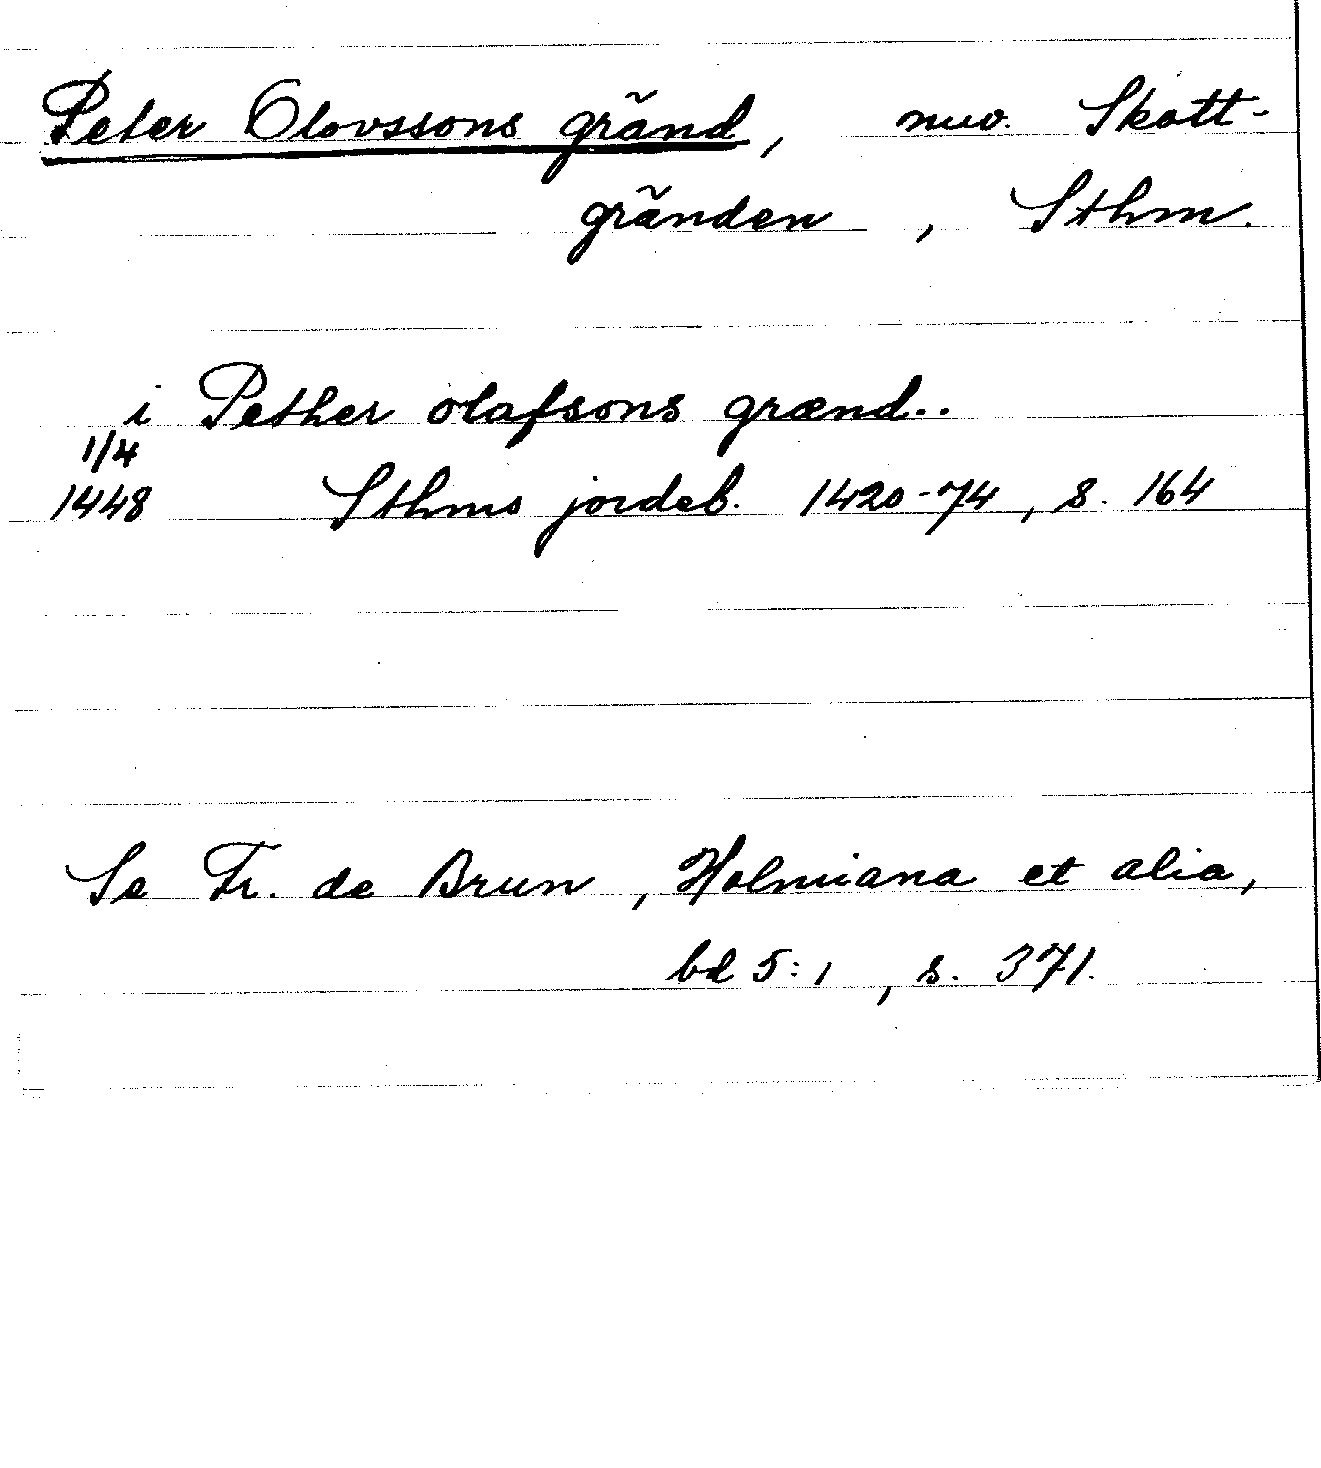 Peter Olovssons gränd, nuv. Skott-
gränden, Sthm.
i Pether olafsons grænd..
1/4
1448 Sthms jordeb. 1420-74, s. 164
Se Fr. de Brun, Holmiana et alia,
bd 5:1, s. 371.